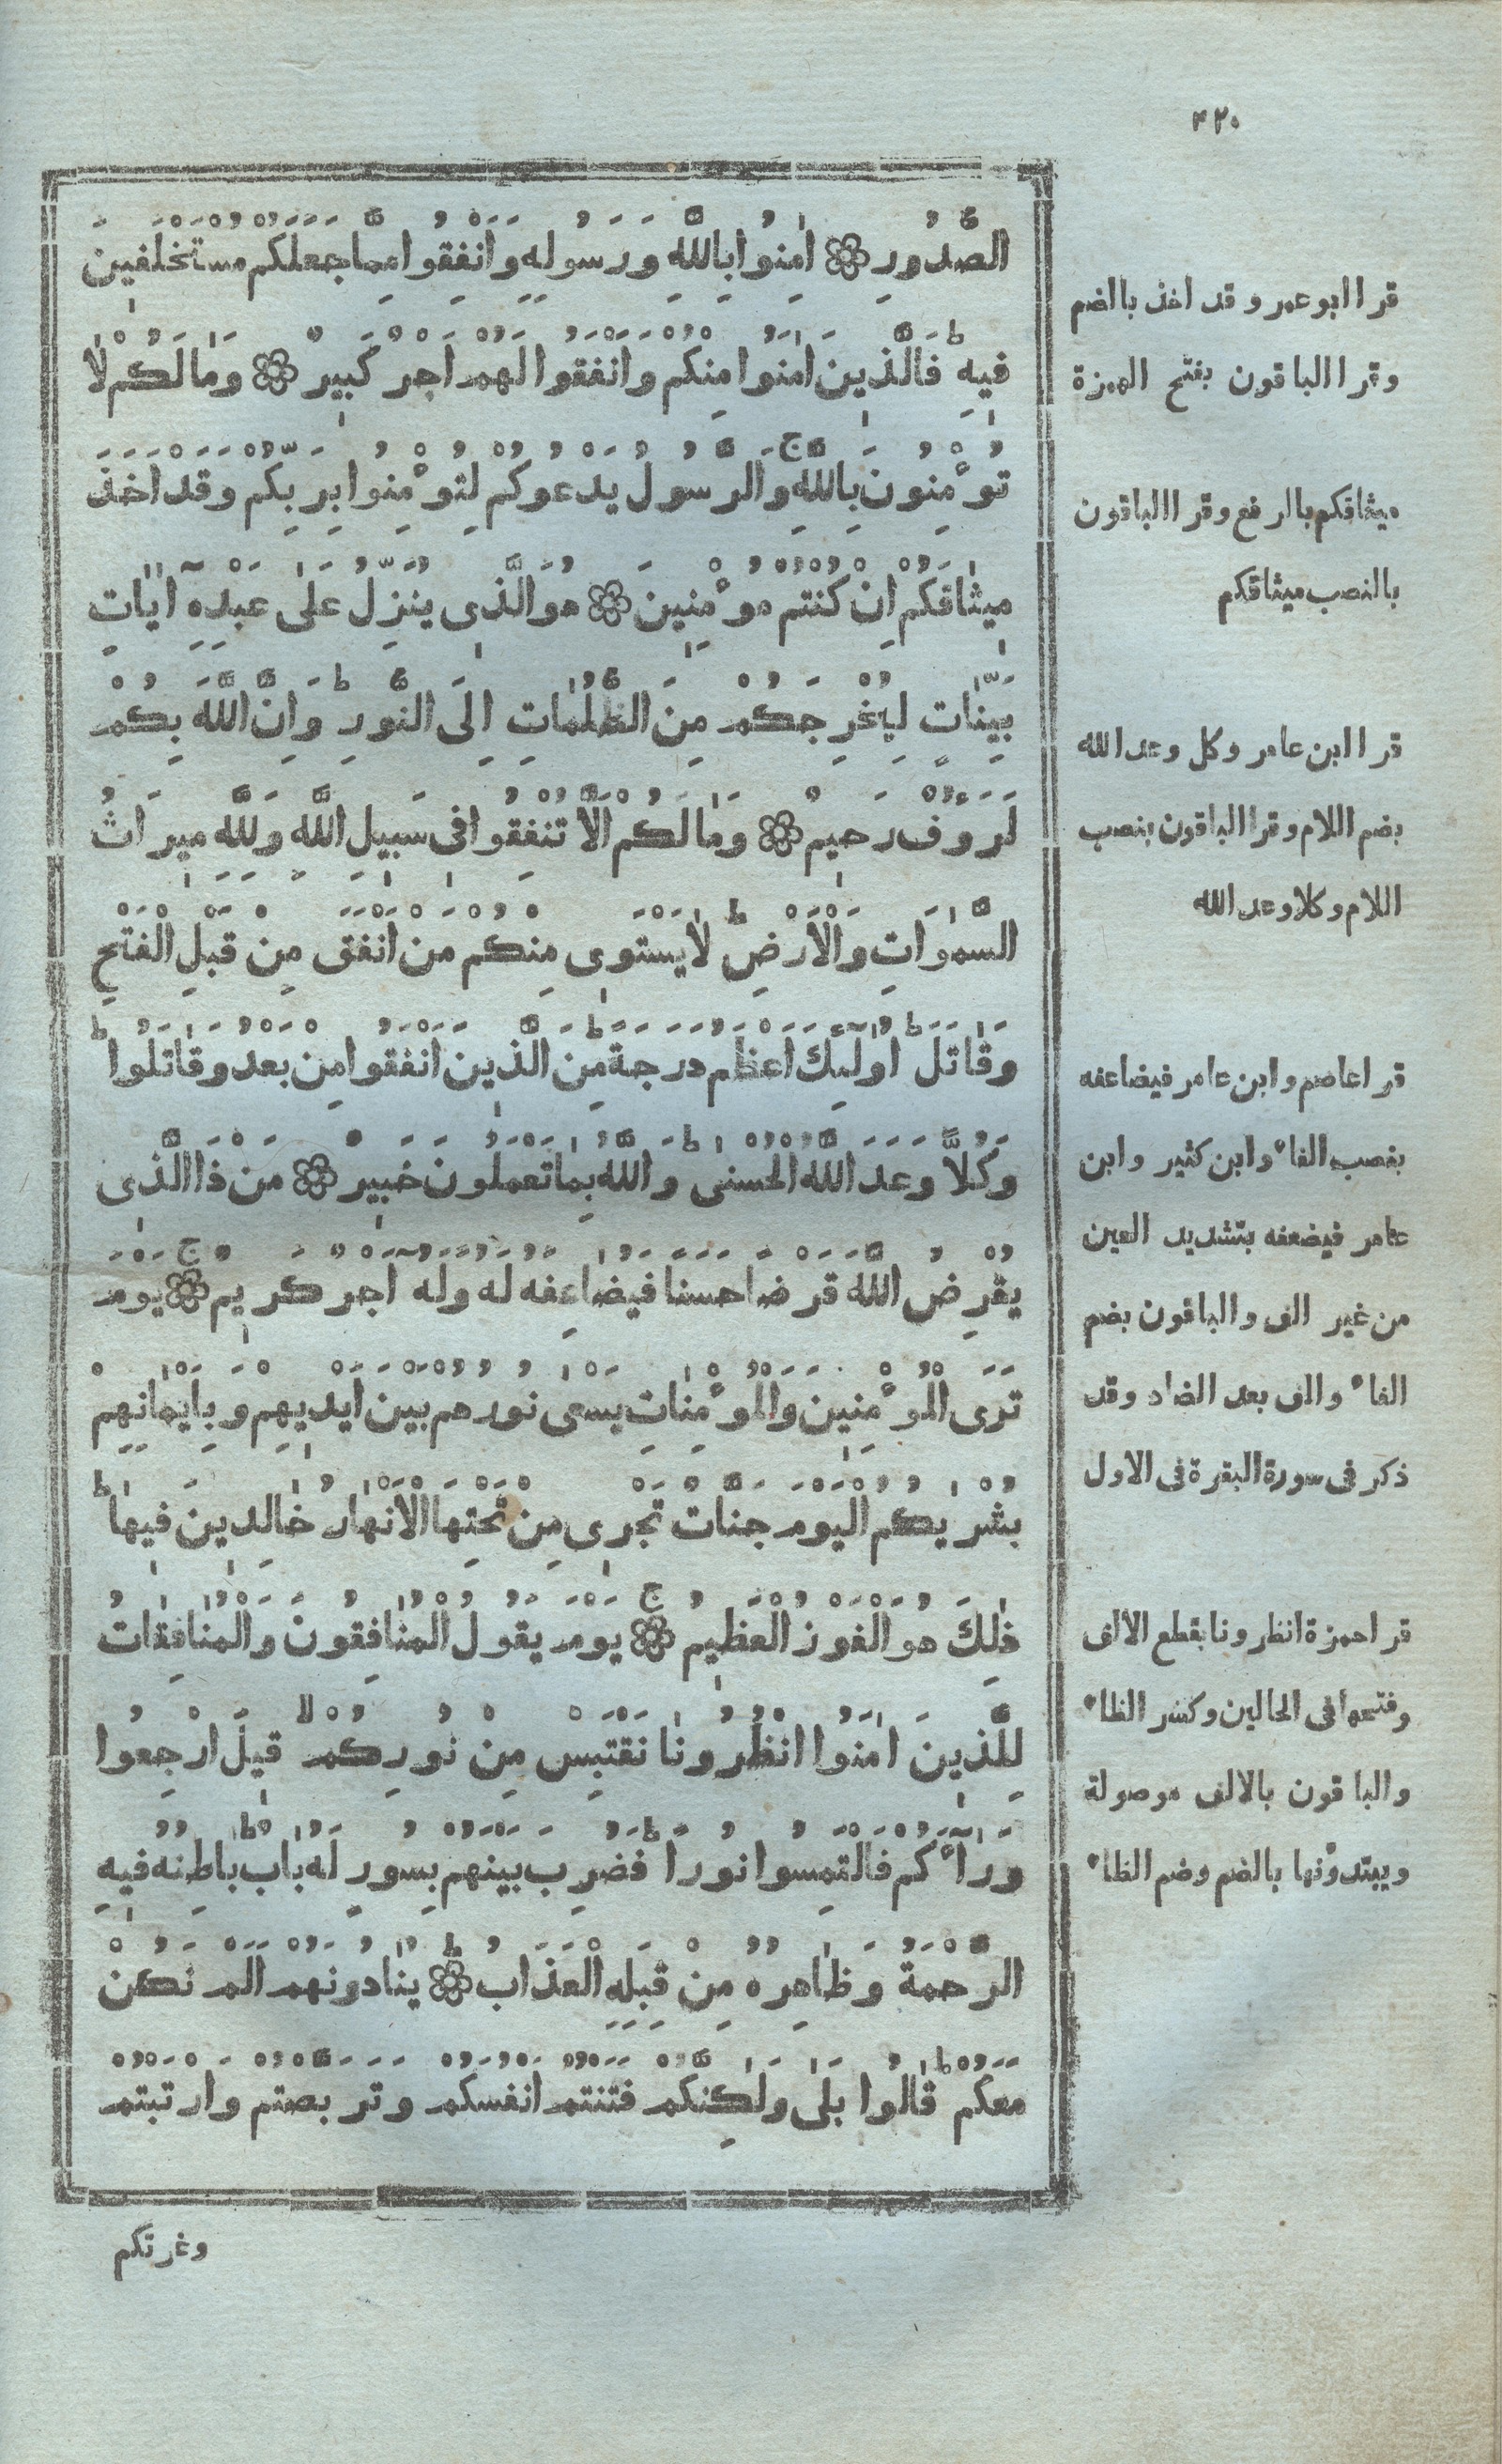 ۴۲۰
الصُّدُورِ ۞ اٰمِنُوا بِاللّٰهِ وَرَسُولِهِ وَاَنْفِقُوا مِمَّا جَعَلَكُمْ مُسْتَخْلَفِينَ
فِيهِ ۖ فَالَّذِينَ اٰمَنُوا مِنْكُمْ وَاَنْفَقُوا لَهُمْ اَجْرٌ كَبِيرٌ ۞ وَمَا لَكُمْ لَا
تُؤْمِنُونَ بِاللّٰهِ ۚ وَالرَّسُولُ يَدْعُوكُمْ لِتُؤْمِنُوا بِرَبِّكُمْ وَقَدْ اَخَذَ
مِيثَاقَكُمْ اِنْ كُنْتُمْ مُؤْمِنِينَ ۞ هُوَ الَّذِى يُنَزِّلُ عَلٰى عَبْدِهِ آيَاتٍ
بَيِّنَاتٍ لِيُخْرِجَكُمْ مِنَ الظُّلُمَاتِ اِلَى النُّورِ ۗ وَاِنَّ اللّٰهَ بِكُمْ
لَرَؤُفٌ رَحِيمٌ ۞ وَمَا لَكُمْ اَلَّا تُنْفِقُوا فِى سَبِيلِ اللّٰهِ وَلِلّٰهِ مِيرَاثُ
السَّمٰوَاتِ وَالْاَرْضِ ۗ لَا يَسْتَوِى مِنْكُمْ مَنْ اَنْفَقَ مِنْ قَبْلِ الْفَتْحِ
وَقَاتَلَ ۗ اُولٰٓئِكَ اَعْظَمُ دَرَجَةً مِنَ الَّذِينَ اَنْفَقُوا مِنْ بَعْدُ وَقَاتَلُوا ۗ
وَكُلًّا وَعَدَ اللّٰهُ الْحُسْنٰى ۗ وَاللّٰهُ بِمَا تَعْمَلُونَ خَبِيرٌ ۞ مَنْ ذَا الَّذِى
يُقْرِضُ اللّٰهَ قَرْضًا حَسَنًا فَيُضَاعِفَهُ لَهُ وَلَهُ اَجْرٌ كَرِيمٌ ۞ يَوْمَ
تَرَى الْمُؤْمِنِينَ وَالْمُؤْمِنَاتِ يَسْعٰى نُورُهُمْ بَيْنَ اَيْدِيهِمْ وَبِاَيْمَانِهِمْ
بُشْرٰيكُمُ الْيَوْمَ جَنَّاتٌ تَجْرِى مِنْ تَحْتِهَا الْاَنْهَارُ خَالِدِينَ فِيهَا ۗ
ذٰلِكَ هُوَ الْفَوْزُ الْعَظِيمُ ۞ يَوْمَ يَقُولُ الْمُنَافِقُونَ وَالْمُنَافِقَاتُ
لِلَّذِينَ اٰمَنُوا انْظُرُونَا نَقْتَبِسْ مِنْ نُورِكُمْ ۙ قِيلَ ارْجِعُوا
وَرَآءَكُمْ فَالْتَمِسُوا نُورًا ۗ فَضُرِبَ بَيْنَهُمْ بِسُورٍ لَهُ بَابٌ ۗ بَاطِنُهُ فِيهِ
الرَّحْمَةُ وَظَاهِرُهُ مِنْ قِبَلِهِ الْعَذَابُ ۞ يُنَادُونَهُمْ اَلَمْ نَكُنْ
مَعَكُمْ ۗ قَالُوا بَلٰى وَلٰكِنَّكُمْ فَتَنْتُمْ اَنْفُسَكُمْ وَتَرَبَّصْتُمْ وَارْتَبْتُمْ
وغرتكم
قرا ابو عمر وقد اخذ بالضم
وقرا الباقون بفتح الهمزة
ميثاقكم بالرفع وقرا الباقون
بالنصب ميثاقكم
قرا ابن عامر وكل وعد الله
بضم اللام وقرا الباقون بنصب
اللام وكلا وعد الله
قرا عاصم وابن عامر فيضاعفه
بنصب الفاء وابن كثير وابن
عامر فيضعفه بتشديد العين
من غير الف والباقون بضم
الفاء والف بعد الضاد وقد
ذكر فى سورة البقرة فى الاول
قرا حمزة انظرونا بقطع الالف
وفتحها فى الحالين وكسر الظاء
والباقون بالالف موصولة
ويبتدؤنها بالضم وضم الظاء